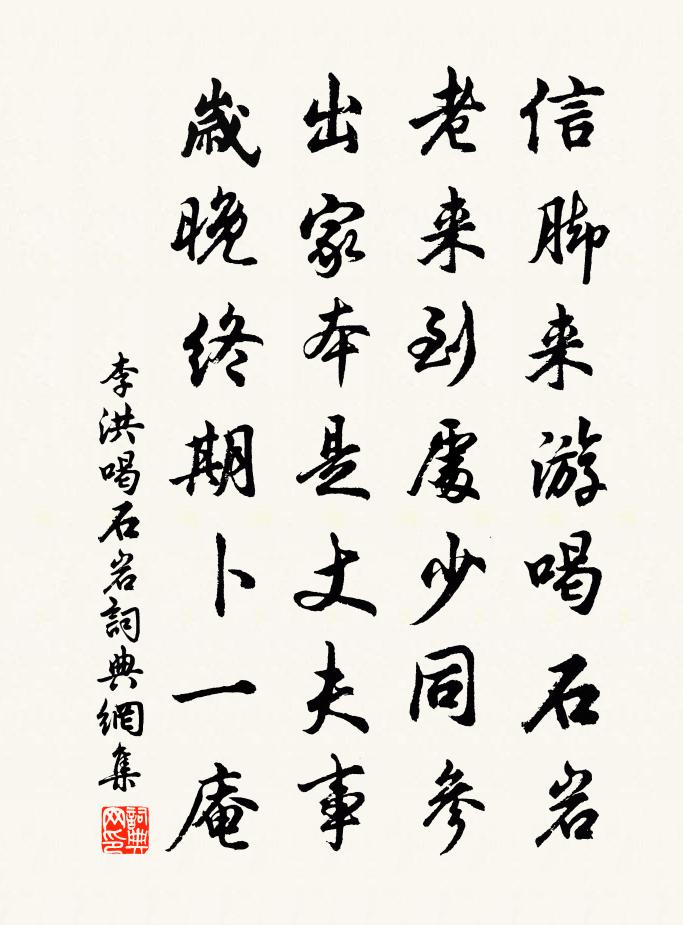 信脚来游喝石岩
老来到處少同參
出家本是丈夫事
歲晚终期卜一庵
李洪喝石岩詞典網集
詞典网印